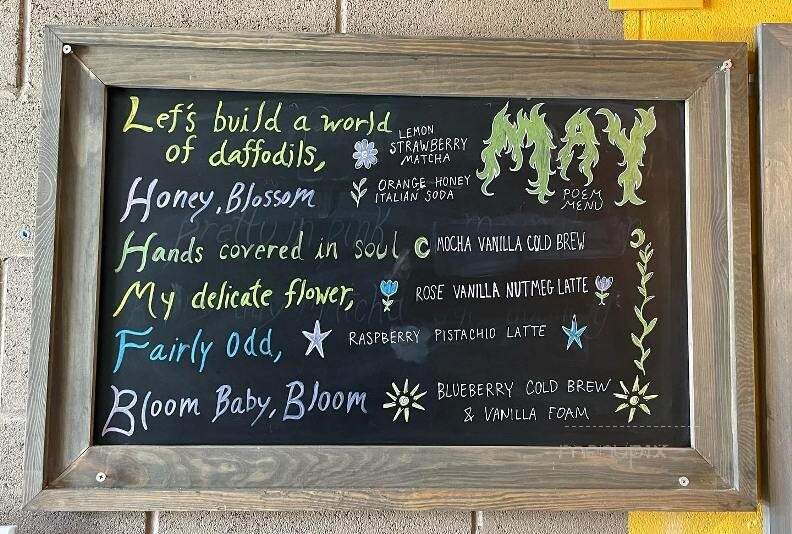 Let's build a world
of daffodils,
LEMON
STRAWBERRY
MATCHA
MAY
POEM
MENU
Honey, Blossom
ORANGE HONEY
ITALIAN SODA
Hands covered in soul
MOCHA VANILLA COLD BREW
My delicate flower,
ROSE VANILLA NUTMEG LATTE
Fairly Odd,
RASPBERRY PISTACHIO LATTE
Bloom Baby, Bloom
BLUEBERRY COLD BREW
& VANILLA FOAM
menupix